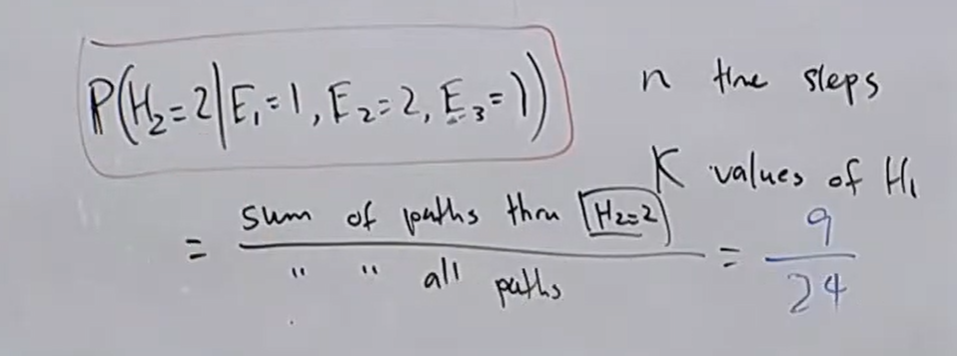 P(H₂=2|E₁=1, E₂=2, E₃=1))
n time steps
K values of H₁
= sum of paths thru H₂=2 / " " all paths = 9/24